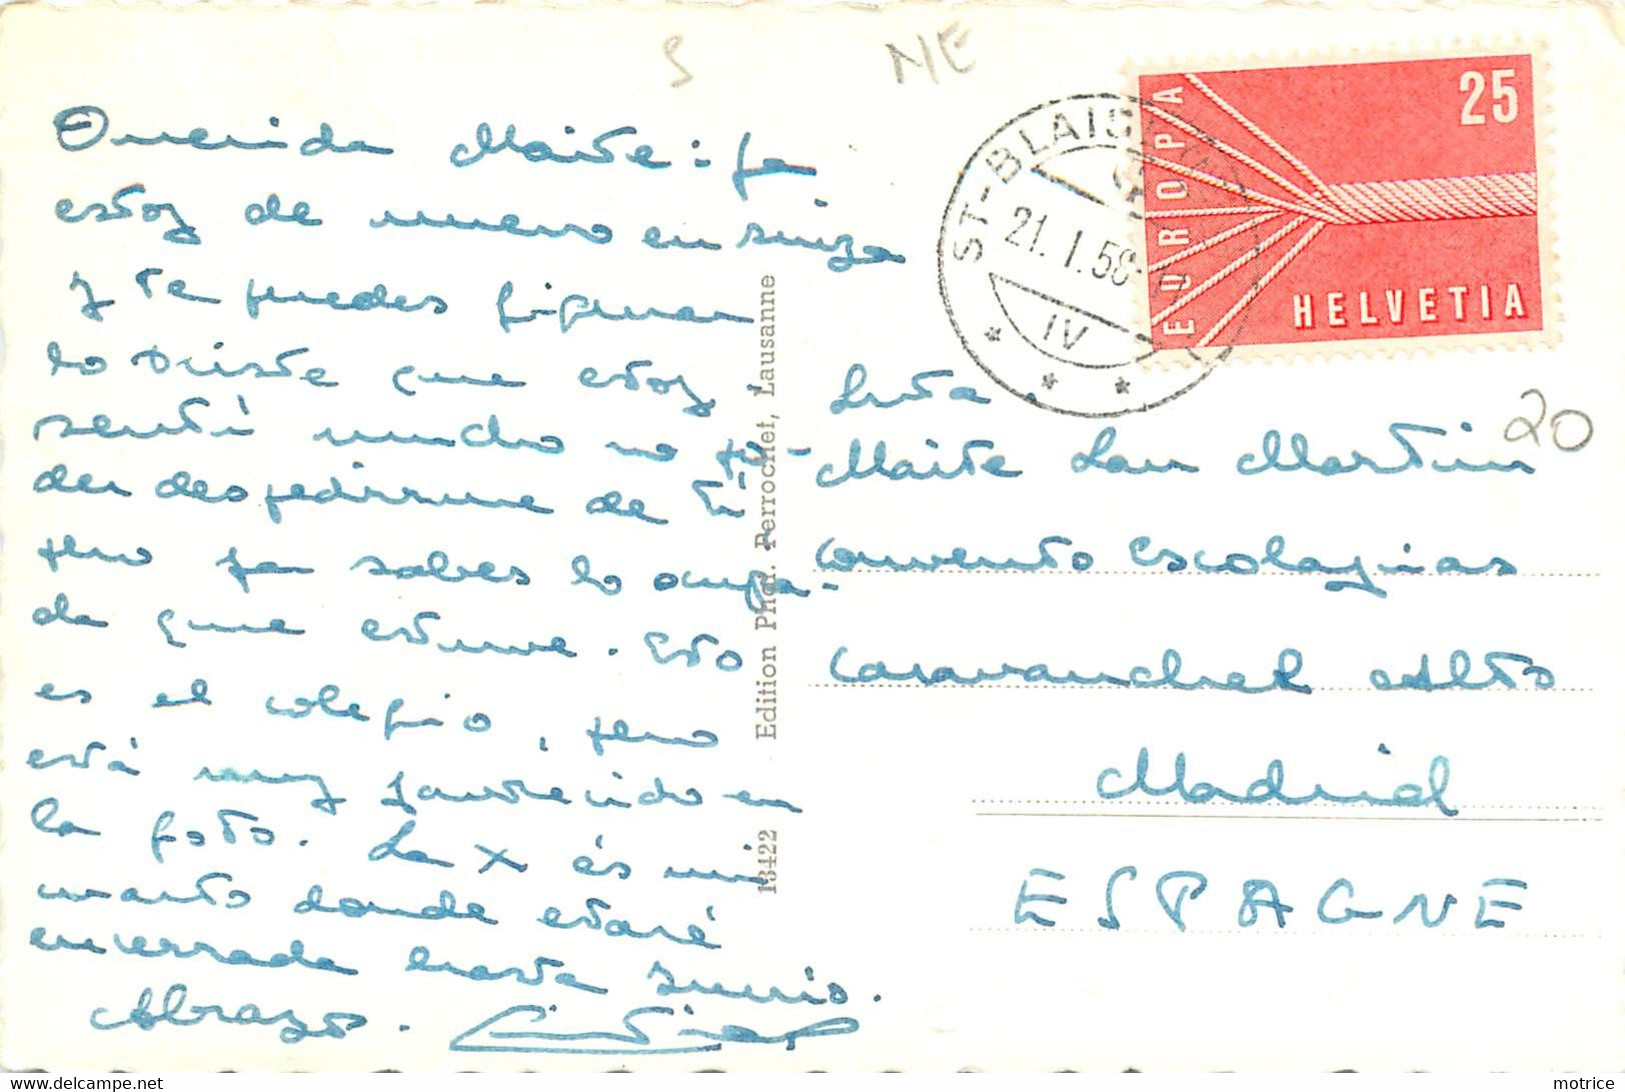 S
NE
Querida Maite: ya
estoy de nuevo en suiza
y te puedes figurar
lo triste que estoy,
sentí mucho no po-
der despedirme de ti
pero ya sabes lo ocupa-
da que estuve. Esto
es el colegio, pero
está muy favorecido en
la foto. La X es mi
cuarto donde estaré
encerrada hasta Junio.
Abrazos.
13422 Edition Phot. Perrochet, Lausanne
ST-BLAISE
21.I.58
IV
EUROPA
25
HELVETIA
20
Srta.
Maite San Martin
convento Escolapias
Caravanchel Alto
Madrid
ESPAGNE
motrice